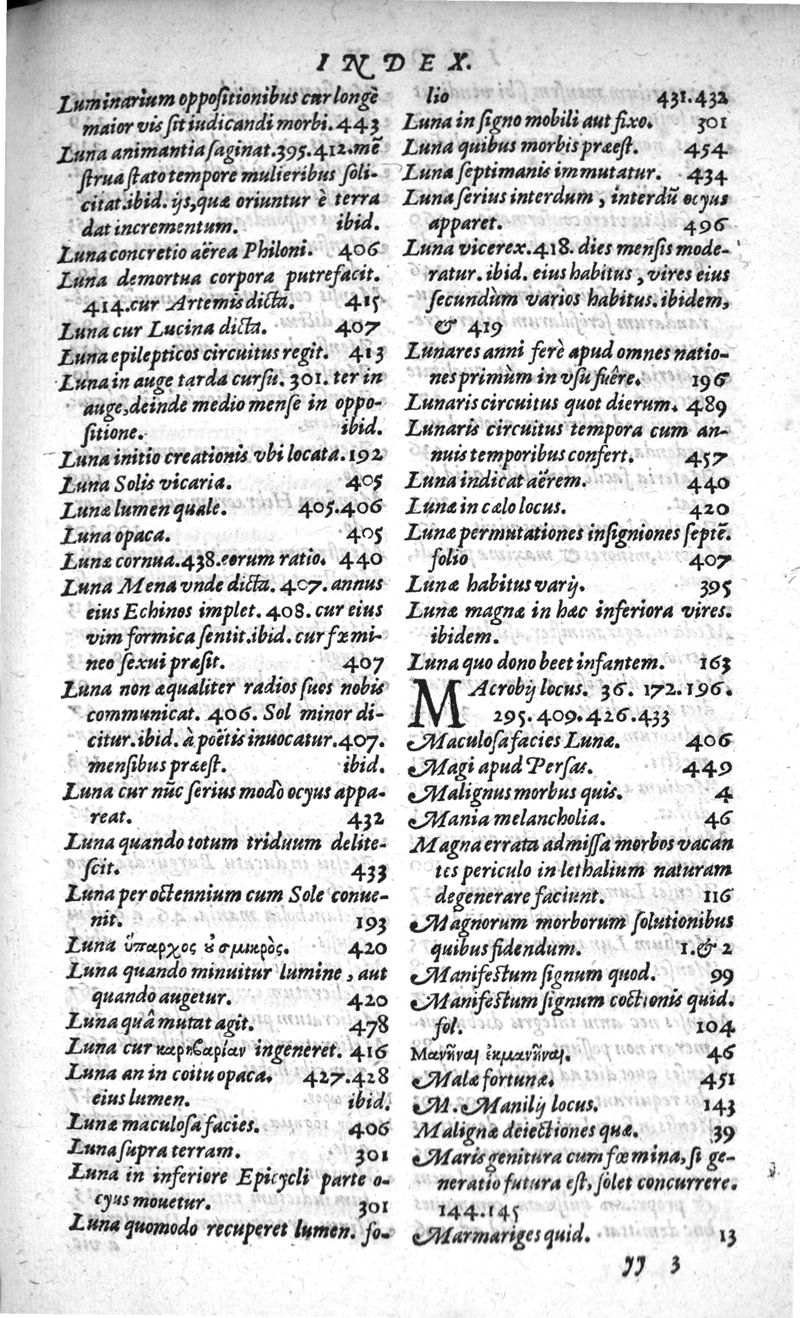 INDEX.
Luminarium oppositionibus cur longè
maior vis sit iudicandi morbi. 443
Luna animantia saginat. 395. 412. mē
strua stato tempore mulieribus soli-
citat. ibid. ijs, quæ oriuntur è terra
dat incrementum. ibid.
Luna concretio aërea Philoni. 406
Luna demortua corpora putrefacit.
414. cur Artemis dicta. 415
Luna cur Lucina dicta. 407
Luna epilepticos circuitus regit. 413
Luna in auge tarda cursu. 301. ter in
auge, deinde medio mense in oppo-
sitione. ibid.
Luna initio creationis vbi locata. 192
Luna Solis vicaria. 405
Lunæ lumen quale. 405.406
Luna opaca. 405
Lunæ cornua. 438. eorum ratio. 440
Luna Mena vnde dicta. 407. annus
eius Echinos implet. 408. cur eius
vim formica sentit. ibid. cur fœmi-
neo sexui præsit. 407
Luna non æqualiter radios suos nobis
communicat. 406. Sol minor di-
citur. ibid. à poëtis inuocatur. 407.
mensibus præest. ibid.
Luna cur nūc serius modò ocyus appa-
reat. 432
Luna quando totum triduum delite-
scit. 433
Luna per octennium cum Sole conue-
nit. 193
Luna ὕπαρχος ȣ σμικρὸς. 420
Luna quando minuitur lumine, aut
quando augetur. 420
Luna quâ mutat agit. 478
Luna cur καρηβαρίαν ingeneret. 416
Luna an in coitu opaca. 427.428
eius lumen. ibid.
Lunæ maculosa facies. 406
Luna supra terram. 301
Luna in inferiore Epicycli parte o-
cyus mouetur. 301
Luna quomodo recuperet lumen. fo-
lio 431.432
Luna in signo mobili aut fixo. 301
Luna quibus morbis præest. 454
Luna septimanis immutatur. 434
Luna serius interdum, interdū ocyus
apparet. 496
Luna vicerex. 418. dies mensis mode-
ratur. ibid. eius habitus, vires eius
secundùm varios habitus. ibidem,
& 419
Lunares anni ferè apud omnes natio-
nes primùm in vsu fuêre. 196
Lunaris circuitus quot dierum. 489
Lunaris circuitus tempora cum an-
nuis temporibus confert. 457
Luna indicat aërem. 440
Lunæ in cælo locus. 420
Lunæ permutationes insigniones septē.
folio 407
Lunæ habitus varij. 395
Lunæ magnæ in hæc inferiora vires.
ibidem.
Luna quo dono beet infantem. 163
MAcrobij locus. 36. 172. 196.
295. 409. 426. 433
Maculosa facies Lunæ. 406
Magi apud Persas. 449
Malignus morbus quis. 4
Mania melancholia. 46
Magna errata admissa morbos vacan
tes periculo in lethalium naturam
degenerare faciunt. 116
Magnorum morborum solutionibus
quibus fidendum. 1. & 2
Manifestum signum quod. 99
Manifestum signum coctionis quid.
fol. 104
Μανῆναι ἐκμανῆναι. 46
Malæ fortunæ. 451
M. Manilij locus. 143
Malignæ deiectiones quæ. 39
Maris genitura cum fœmina, si ge-
neratio futura est, solet concurrere.
144.145
Marmariges quid. 13
JJ 3